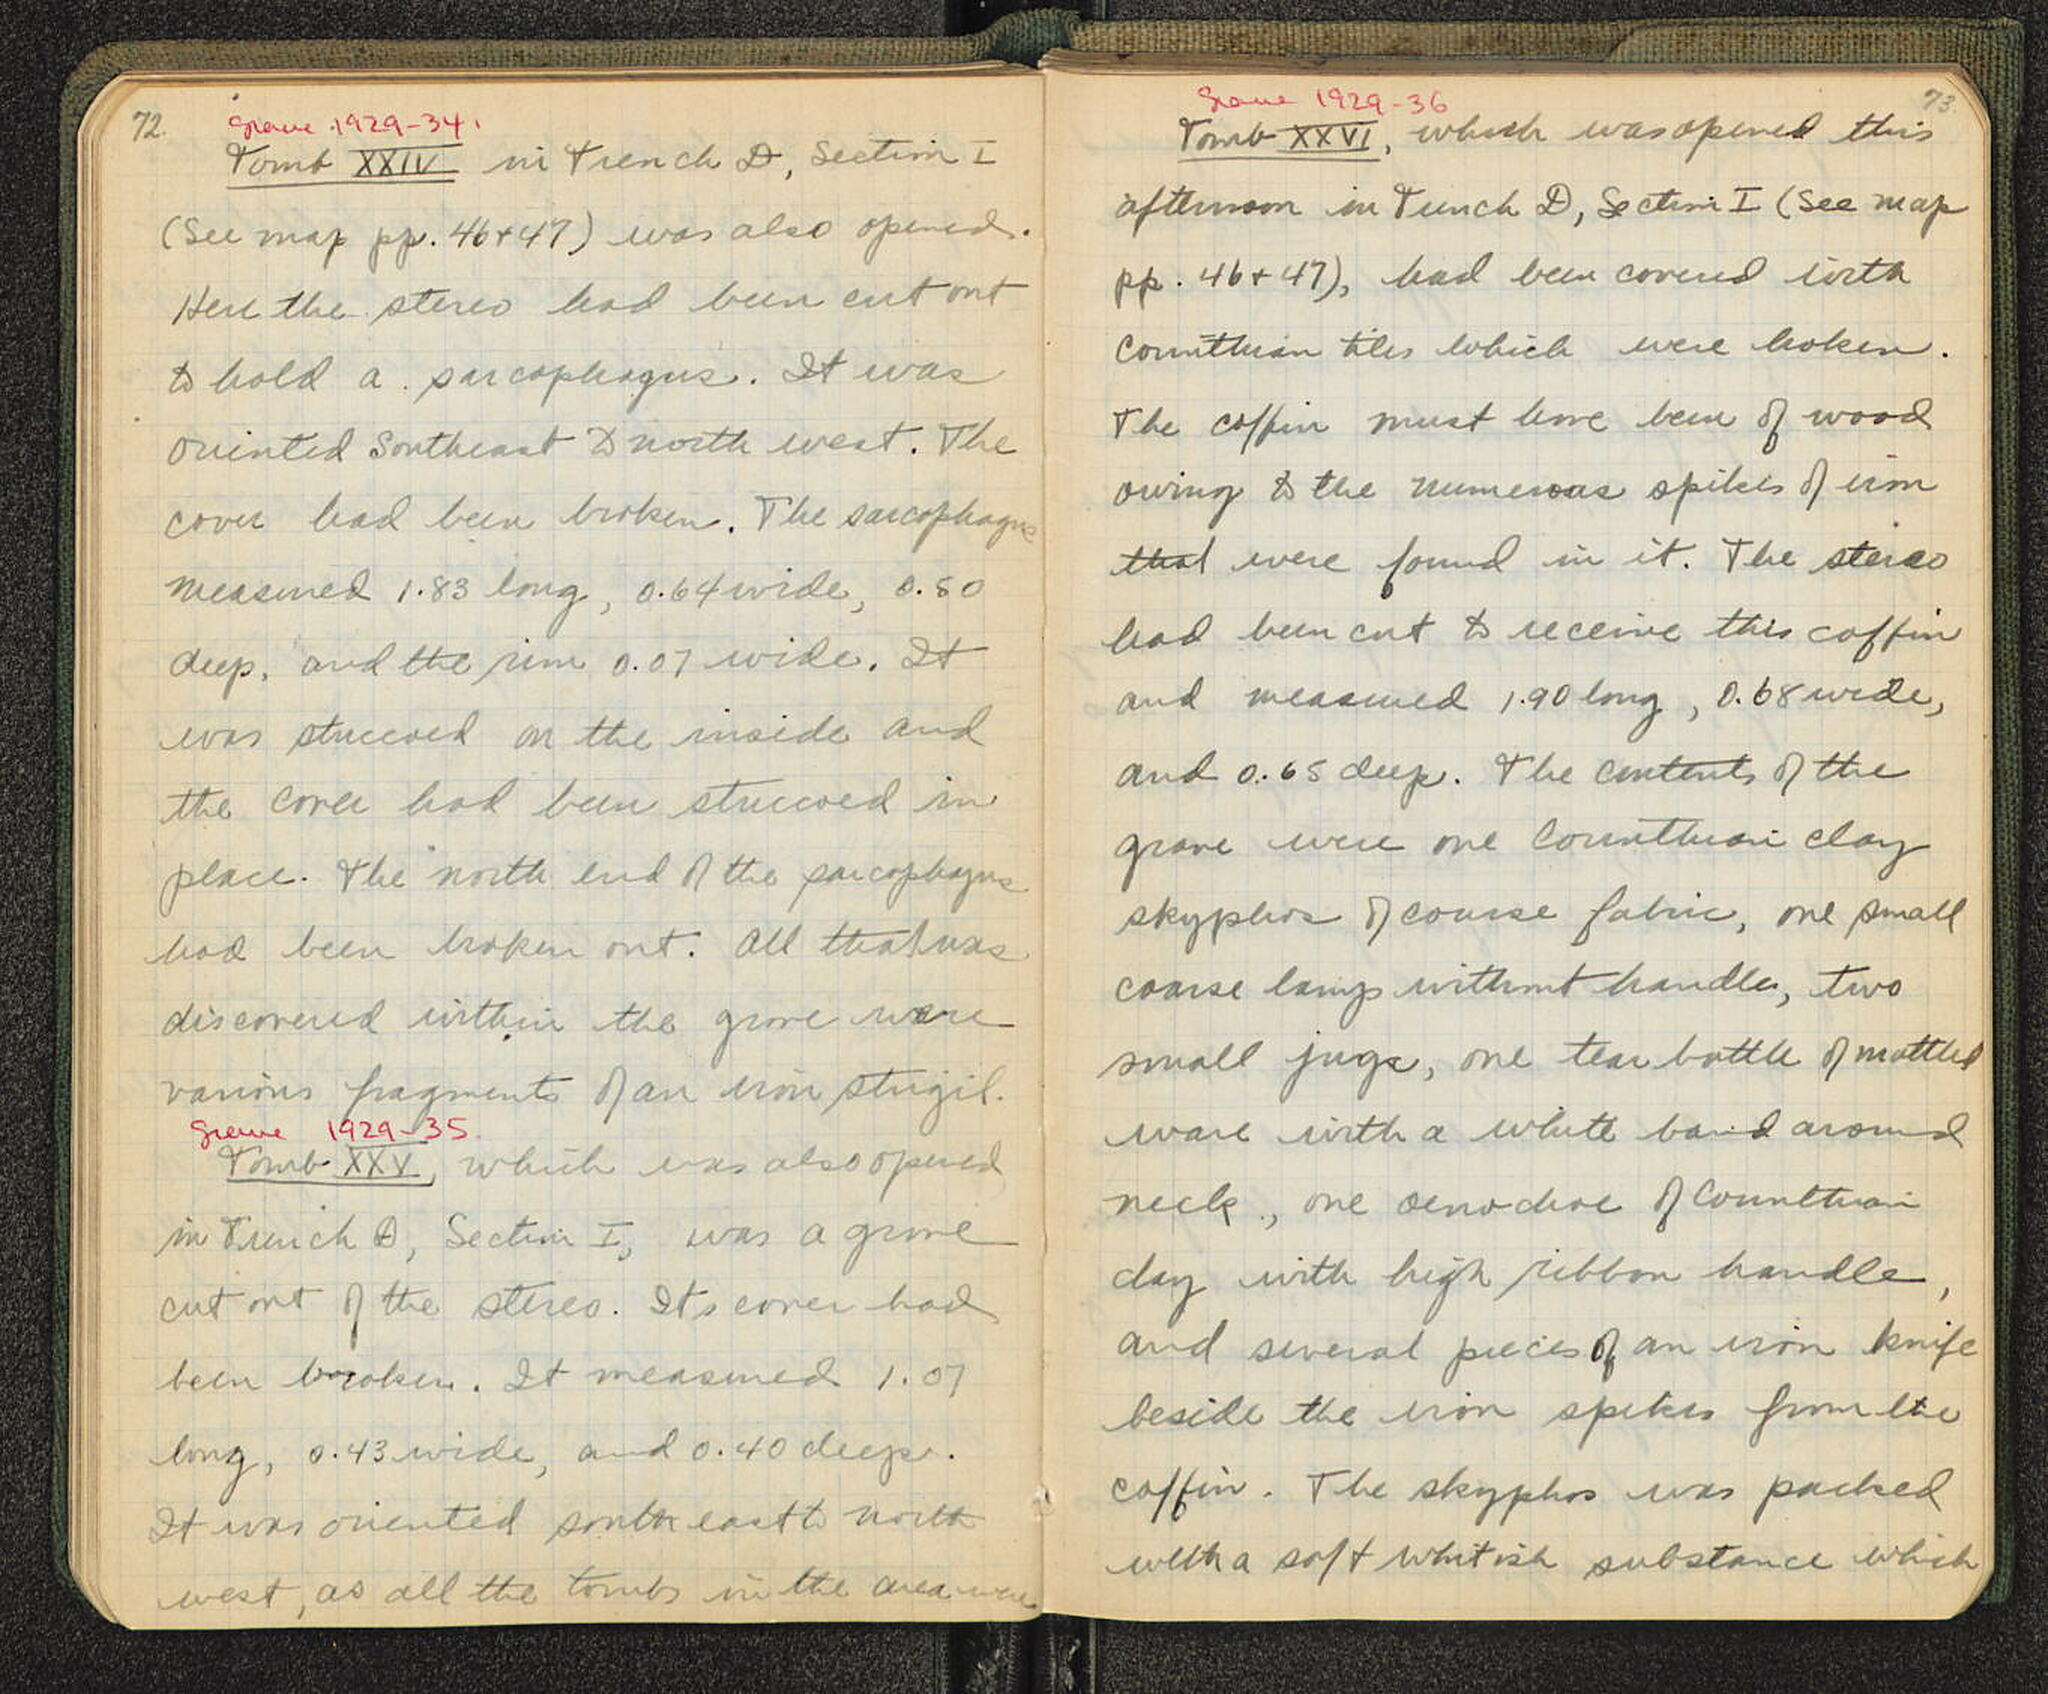 72.
Grave 1929-34.
Tomb XXIV in Trench D, Section I
(See map pp. 46+47) was also opened.
Here the stereo had been cut out
to hold a sarcophagus. It was
oriented Southeast to north west. The
cover had been broken. The sarcophagus
measured 1.83 long, 0.64 wide, 0.50
deep, and the rim 0.07 wide. It
was stuccoed on the inside and
the cover had been stuccoed in
place. The north end of the sarcophagus
had been broken out. All that was
discovered within the grave were
various fragments of an iron strigil.
Grave 1929-35
Tomb XXV, which was also opened
in Trench D, Section I, was a grave
cut out of the stereo. Its cover had
been broken. It measured 1.07
long, 0.43 wide, and 0.40 deep.
It was oriented south east to north
west, as all the tombs in the area were
73.
Grave 1929-36
Tomb XXVI, which was opened this
afternoon in Trench D, Section I (See map
pp. 46+47), had been covered with
Corinthian tiles which were broken.
The coffin must have been of wood
owing to the numerous spikes of iron
that were found in it. The stereo
had been cut to receive this coffin
and measured 1.90 long, 0.68 wide,
and 0.65 deep. The contents of the
grave were one Corinthian clay
skyphos of course fabric, one small
coarse lamp without handle, two
small jugs, one tear bottle of mottled
ware with a white band around
neck, one oenochoe of Corinthian
clay with high ribbon handle,
and several pieces of an iron knife
beside the iron spikes from the
coffin. The skyphos was packed
with a soft whitish substance which